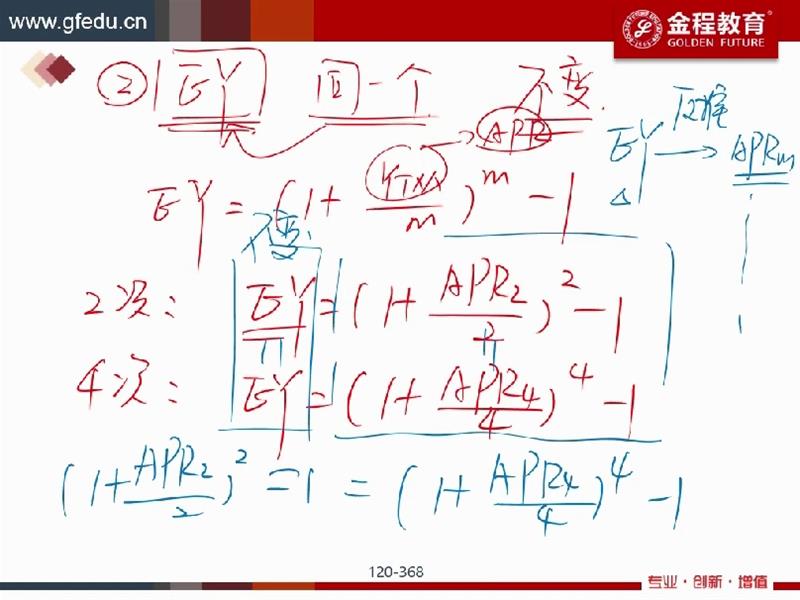 www.gfedu.cn
金程教育
GOLDEN FUTURE
② EY 同一个 不变.
APR
EY → APRm
反推
EY = (1 + YTM/m)^m - 1
不变
2次: EY = (1 + APR₂/2)² - 1
4次: EY = (1 + APR₄/4)⁴ - 1
(1 + APR₂/2)² - 1 = (1 + APR₄/4)⁴ - 1
120-368
专业·创新·增值